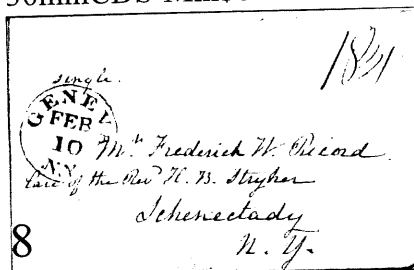 30mmCDS
single.
GENEV
FEB
10
N.Y.
Mr Frederick W. Ricord
Care of the Revd H. B. Stryker
Schenectady
N. Y.
8